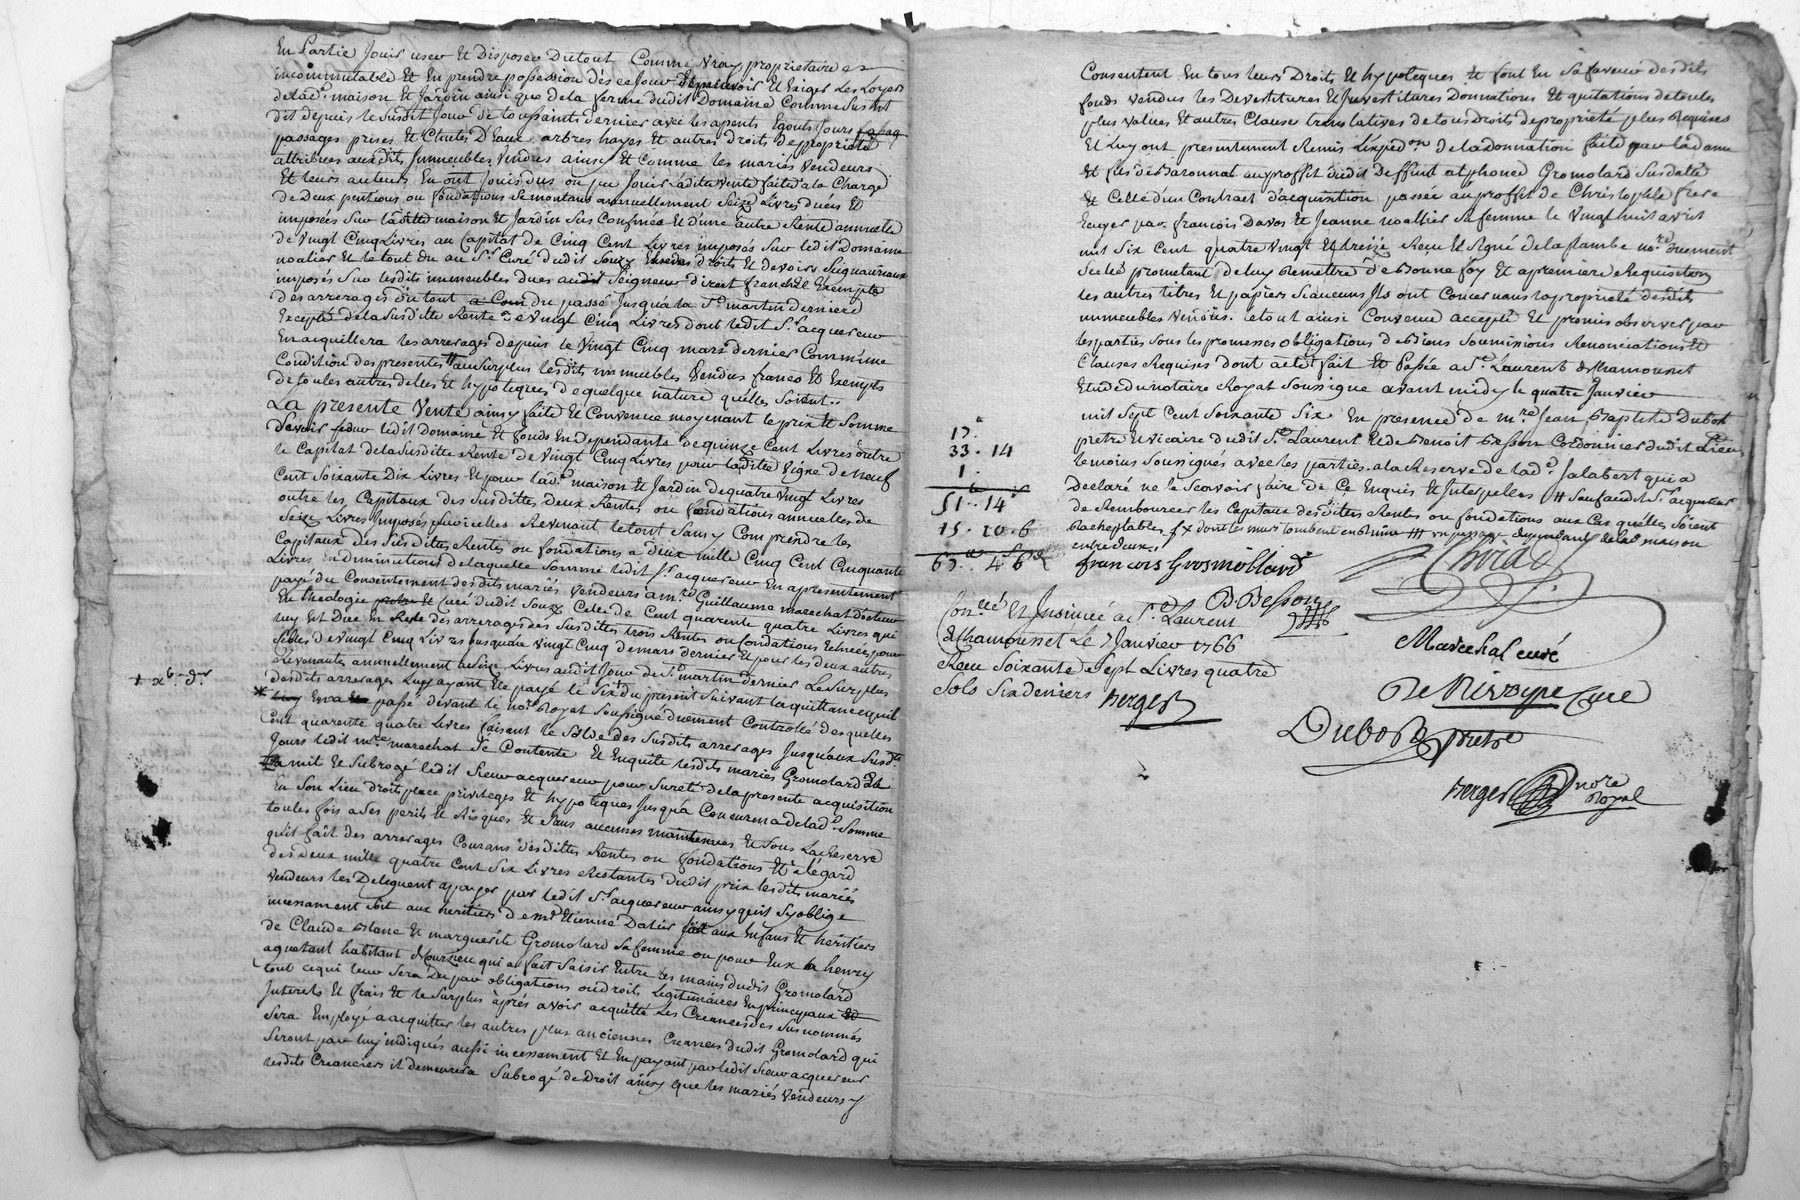 En Partie Jouir user Et Disposer Dutout Comme vray proprietaire et
incommutable Et En prendre possession dès ce Jour Et percevoir Et Exiger Les Loyers
delad.e maison Et Jardin ainsi que dela ferme dudit Domaine Comme Sus Est
dit depuis le Susdit Jour de toussaints dernier avec les apents Egouts Jours
passages prises Et Chutes D'Eaux arbres hayes Et autres droits de proprieté
attribues auxdits Immeubles Vendus ainsy Et Comme les mariés Vendeurs
Et leurs auteurs En ont Jouis dus ou pu Jouir Ladite Vente faite a la Charge
de Deux pentions ou fondations Se montant annuellement Seize Livres dues Et
imposées Sur ladite maison Et Jardin Sus Confinée Et d'une autre Rente annuelle
de Vingt Cinq Livres au Capital de Cinq Cent Livres imposés Sur ledit Domaine
noalier Et le tout du au S.r Curé dudit Souzy droits Et devoirs Seigneuriaux
imposés Sur lesdits immeubles dues audit Seigneur direct franche Exempte
des arrerages du tout du passé Jusqua la S.t martin derniere
Excepté dela Susditte Rente de Vingt Cinq Livres dont ledit S.r acquereur
En acquittera les arrerages depuis le Vingt Cinq mars dernier Comm'une
Condition des presentes au Surplus lesdits immeubles Vendus francs Et Exempts
de toutes autres dettes Et hypoteques de quelque nature quelles Soient..
La presente Vente ainsy faite Et Convenue moyenant le prix Et Somme
Savoir ledit Domaine Et fonds En Dependants de quinze Cent Livres outre
le Capital dela Susditte Rente de Vingt Cinq Livres pour laditte Vigne de neuf
Cent Soixante Dix Livres Et pour lad.e maison Et Jardin de quatre Vingt Livres
outre les Capitaux des Susdittes Deux Rentes ou fondations annuelles de
Seize Livres Imposés Sur icelles Revenant le tout Sans y Comprendre les
Capitaux des Susdittes Rentes ou fondations a deux mille Cinq Cent Cinquante
Livres En diminutions delaquelle Somme ledit S.r acquereur En a presentement
payé du Consentement desdits mariés Vendeurs a m.re Guillaume marechat docteur
En theologie Curé dudit Souzy Celle de Cent quarente quatre Livres qui
luy Est Due En Reste des arrerages des Susdittes trois Rentes ou fondations
Celles de Vingt Cinq Livres Jusqu'au Vingt Cinq de mars dernier Et pour les deux autres
Revenantes annuellement a Seize Livres audit Jour de S.t martin dernier Le Surplus
desdits arrerages Luy ayant Eté payé le Six du present Suivant la quittance quil
En a passé devant le no.re Royal Soussigné duement Controlée desquelles
Cent quarente quatre Livres faisant le Solde des Susdits arrerages Jusqu'aux Susd.ts
Jours ledit m.re marechat Se Contente Et En quitte lesdits mariés Gromolard Et
a mit Et Subrogé ledit Sieur acquereur pour Sureté dela presente acquisition
En Son Lieu droit place privileges Et hypoteques Jusqu'a Concurence delad.e Somme
toutes fois a Ses perils Et Risques Et Sans aucunes maintenues Et Sous La Reserve
quil fait des arrerages Courans desdittes Rentes ou fondations Et a legard
des deux mille quatre Cent Six Livres Restantes dudit prix lesdits mariés
Vendeurs les Deleguent a payer par ledit S.r acquereur ainsy quil S'y oblige
incessament Soit aux heritiers de m.re Etienne Dalier Soit aux Enfans Et heritiers
de Claude Blanc Et marguerite Gromolard Sa femme ou pour Eux a henry
aquetant habitant qui a fait Saisir Entre les mains dudit Gromolard
tout cequi leur Sera Du par obligations ou droits Legitimaires En principaux
Interets Et frais Et le Surplus après avoir acquitté Les Creances des Sus nommés
Sera Employé a acquitter les autres plus anciennes Creances dudit Gromolard qui
Seront par luy indiqués aussi incessament Et En payant par ledit Sieur acquereur
lesdits Creanciers il demeurera Subrogé de Droit ainsy que les mariés Vendeurs y
Consentent En tous leurs Droits Et hypoteques Et font En Sa faveur desdits
fonds vendus les Devestitures Et Investitures Donnations Et quitations de toutes
plus values Et autres Clauses translatives de tous Droits de proprieté plus Requises
Et Luy ont presentement Remis L'Expedon dela donnation faite par la dame
Et fils de Baronnat au proffit dudit Deffunt alphonce Gromolard Susdatté
Et Celle d'un Contract d'acquisition passée au proffit de Christophle frere
Leuger par francois Davos Et Jeanne noallier Sa femme le Vingt huit avril
mil Six Cent quatre Vingt Et treize Reçu Et Signé dela flambe no.re duement
Scellé prometant de luy Remettre de Bonne foy Et a premiere Requisition
les autres titres Et papiers Si aucuns Ils ont Concernans la proprieté desdits
immeubles Vendus. le tout ainsi Convenu accepté Et promis observer par
les parties Sous les promesses obligations de Biens Soumissions Renonciations Et
Clauses Requises dont acte fait Et Passée a S.t Laurent de Chamousset
Etude du notaire Royal Soussigné avant midy le quatre Janvier
mil Sept Cent Soixante Six En presence de m.re Jean Baptiste Dubost
pretre Et Vicaire dudit S.t Laurent Et de Benoit Besson Cordonnier dudit Lieu
temoins Soussignés avec les parties a la Reserve de lad.e Jalabert qui a
Declaré ne le Scavoir faire de Ce Enquis Et Interpellés Sauf audit S.r acquereur
de Rembourcer les Capitaux desdittes Rentes ou fondations aux Cas quelles Soient
Rachetables dont les murs tombent en Ruine un passage dependant de lad.e maison
entre deux.
francois Grosmollard
B Besson
Marechal curé
Curé
Dubost ptre
Berger nore
Royal
13.
33.. 14
1.
51.. 14
15.. 10.. 6
67.. 4.. 6
Con.llé Et Insinué a S.t Laurent
de Chamousset Le 7 Janvier 1766
Recu Soixante et Sept Livres quatre
Sols Six deniers Berger